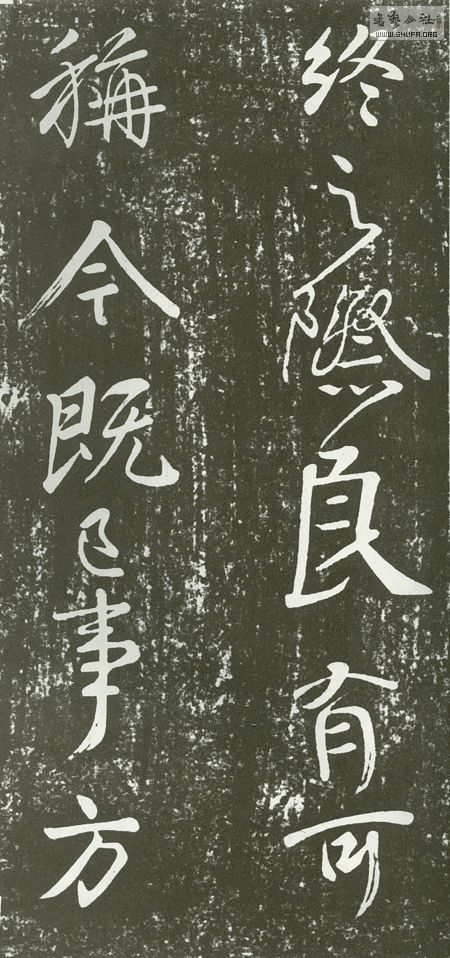 書藝公社
WWW.SHUFA.ORG
終之際良有可
稱今既已事方